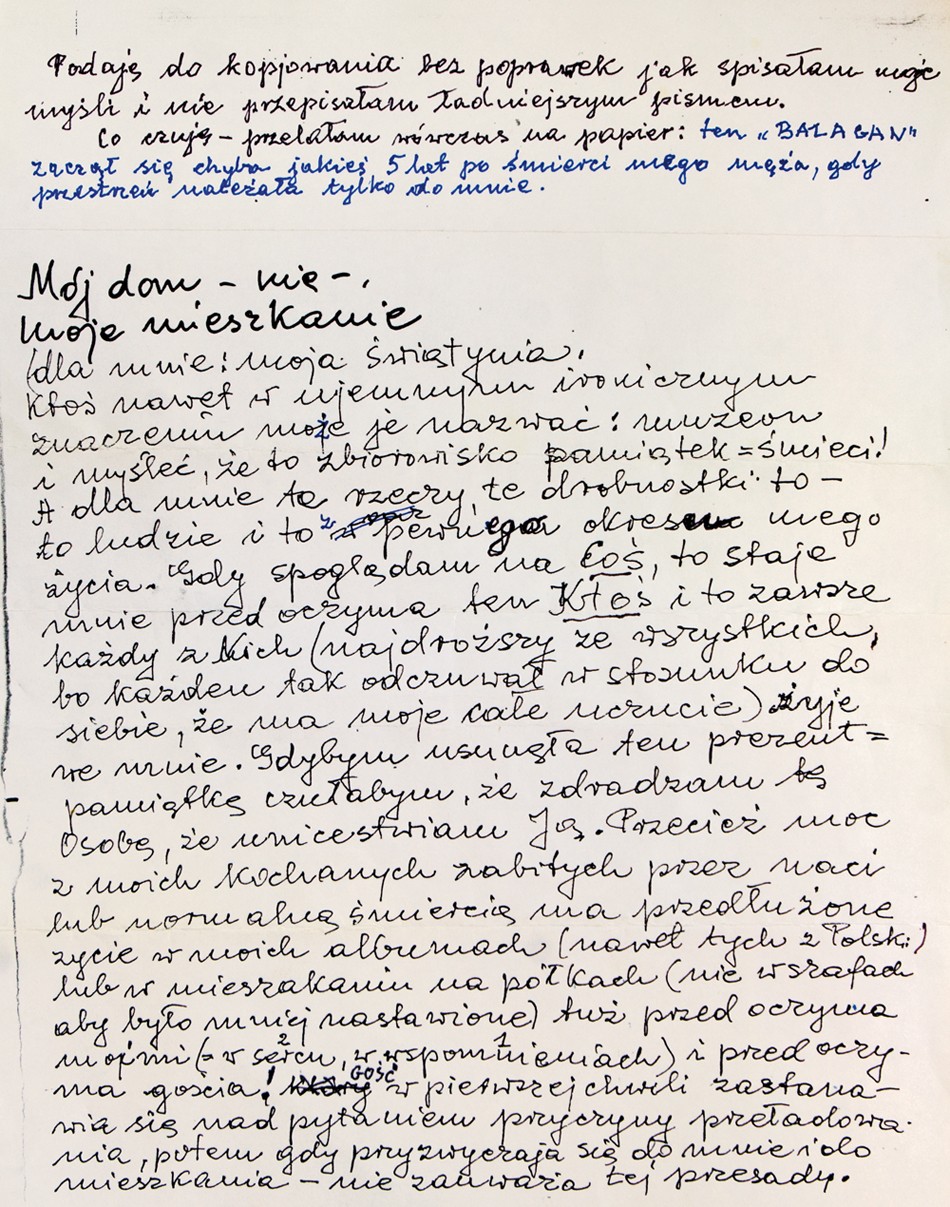 Podaję do kopjowania bez poprawek jak spisałam moje
myśli i nie przepisałam ładniejszym pismem.
Co czuję – przelałam wówczas na papier: ten „BAŁAGAN"
zaczął się chyba jakieś 5 lat po śmierci mego męża, gdy
przestrzeń należała tylko do mnie.
Mój dom – nie –.
moje mieszkanie
(dla mnie: moja świątynia.
Ktoś nawet w ujemnym ironicznym
znaczeniu może je nazwać: muzeom
i myśleć, że to zbiorowisko pamiątek = śmieci!
A dla mnie te rzeczy, te drobnostki to –
to ludzie i to z pewnego okresu mego
życia. Gdy spoglądam na Coś, to staje
mnie przed oczyma ten Ktoś i to zawsze
każdy z Nich (najdroższy ze wszystkich,
bo każden tak odczuwał w stosunku do
siebie, że ma moje całe uczucie) żyje
we mnie. Gdybym usunęła ten prezent =
pamiątkę czułabym, że zdradzam tę
Osobę, że unicestwiam Ją. Przecież moc
z moich kochanych zabitych przez naci
lub normalną śmiercią ma przedłużone
życie w moich albumach (nawet tych z Polski)
lub w mieszkaniu na półkach (nie w szafach
aby było mniej nastawione) tuż przed oczyma
mojmi (= w sercu, w wspomnieniach) i przed oczy-
2 1
ma gościa! GOŚĆ w pierwszej chwili zastana-
wia się nad pytaniem przyczyny przeładowa-
nia, potem gdy przyzwyczaja się do mnie i do
mieszkania – nie zauważa tej przesady.